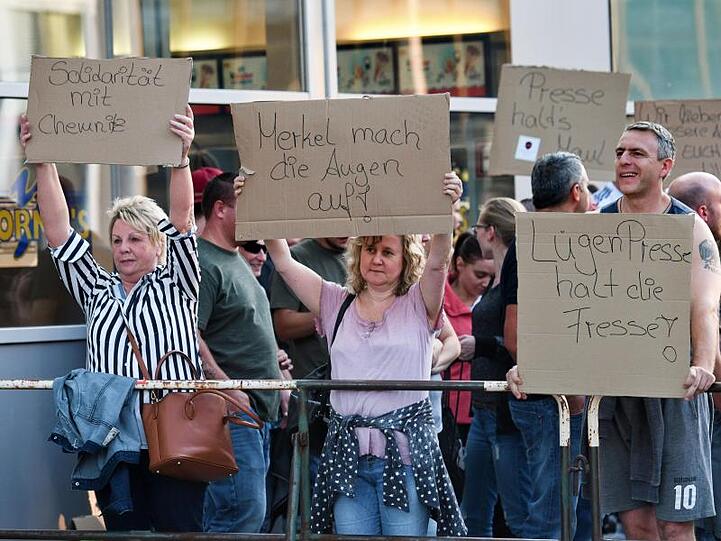 Solidarität
mit
Chemnitz
Merkel mach
die Augen
auf!
Presse
halt's
Maul
LügenPresse
halt die
Fresse!
10